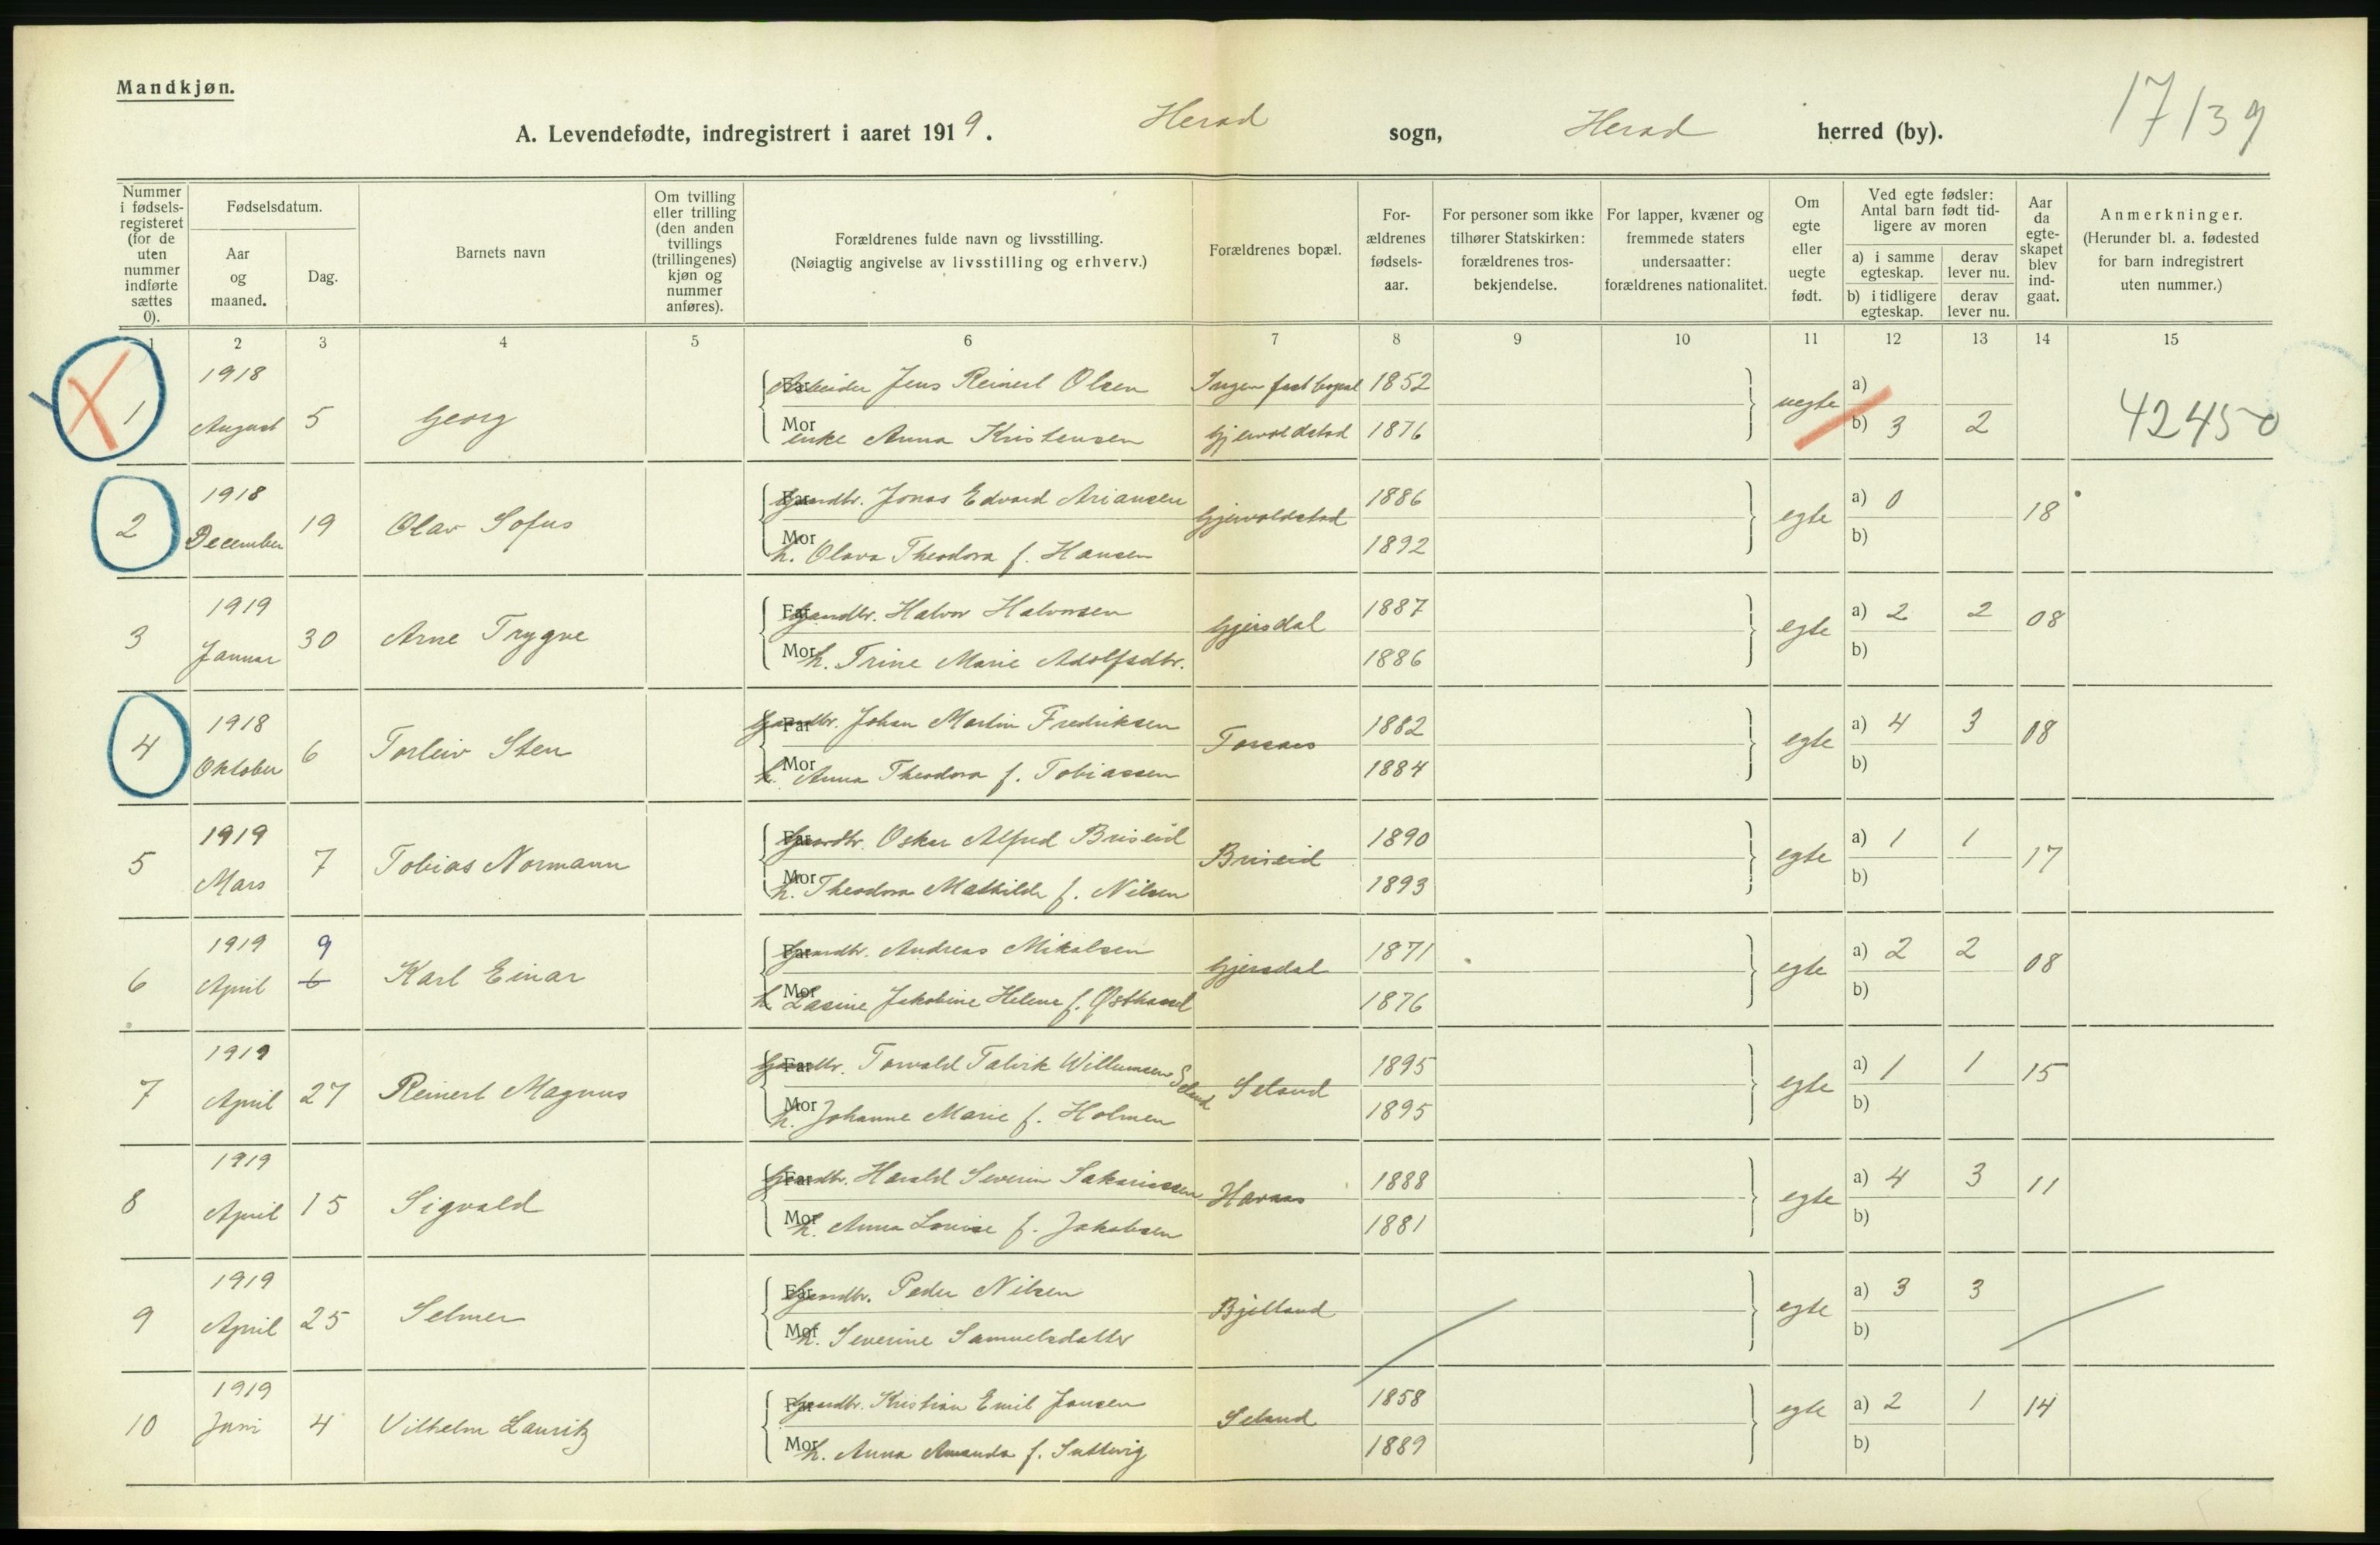 Mandkjøn.
A. Levendefødte, indregistrert i aaret 1919. Herad sogn, Herad herred (by). 17/39
Nummer i fødselsregisteret (for de uten nummer indførte sættes 0).
Fødselsdatum.
Aar og maaned.
Dag.
Barnets navn
Om tvilling eller trilling (den anden tvillings (trillingenes) kjøn og nummer anføres).
Forældrenes fulde navn og livsstilling.
(Nøiagtig angivelse av livsstilling og erhverv.)
Forældrenes bopæl.
Forældrenes fødselsaar.
For personer som ikke tilhører Statskirken: forældrenes trosbekjendelse.
For lapper, kvæner og fremmede staters undersaatter: forældrenes nationalitet.
Om egte eller uegte født.
Ved egte fødsler: Antal barn født tidligere av moren
a) i samme egteskap.
derav lever nu.
b) i tidligere egteskap.
derav lever nu.
Aar da egteskapet blev indgaat.
Anmerkninger.
(Herunder bl. a. fødested for barn indregistrert uten nummer.)
1 2 3 4 5 6 7 8 9 10 11 12 13 14 15
1918 Far Arbeider Jens Reinert Olsen Ingen fast bopæl 1852 a)
1 August 5 Georg Mor enke Anna Kristensen Gjervoldstad 1876 uegte b) 3 2 42450
1918 Far Gaardbr. Jonas Edvard Ariansen 1886 a) 0
2 December 19 Olav Sofus Mor h. Olava Theodora f. Hansen Gjervoldstad 1892 egte b) 18
1919 Far Gaardbr. Halvor Halvorsen 1887 a) 2 2
3 Januar 30 Arne Trygve Mor h. Trine Marie Adolfsdtr. Gjersdal 1886 egte b) 08
1918 Far Gaardbr. Johan Martin Fredriksen 1882 a) 4 3
4 Oktober 6 Torleiv Sten Mor h. Anna Theodora f. Tobiassen 1884 egte b) 08
1919 Far Gaardbr. Oskar Alfred Briseid 1890 a) 1 1
5 Mars 7 Tobias Normann Mor h. Theodora Mathilde f. Nilsen Briseid 1893 egte b) 17
1919 9 Far Gaardbr. Andreas Mikalsen 1871 a) 2 2
6 April 6 Karl Einar Mor h. Lasine Jakobine Helene f. Østhassel Gjersdal 1876 egte b) 08
1919 Far Gaardbr. Torvald Talvik Willumsen Seland 1895 a) 1 1
7 April 27 Reinert Magnus Mor h. Johanne Marie f. Holmen Seland 1895 egte b) 15
1919 Far Gaardbr. Harald Severin Sakariassen 1888 a) 4 3
8 April 15 Sigvald Mor h. Anna Lovise f. Jakobsen Haraas 1881 egte b) 11
1919 Far Gaardbr. Peder Nilsen a) 3 3
9 April 25 Selmer Mor h. Severine Samuelsdatter Bjelland egte b)
1919 Far Gaardbr. Kristian Emil Jansen 1858 a) 2 1
10 Juni 4 Vilhelm Lauritz Mor h. Anna Amanda f. Suttevig Seland 1889 egte b) 14